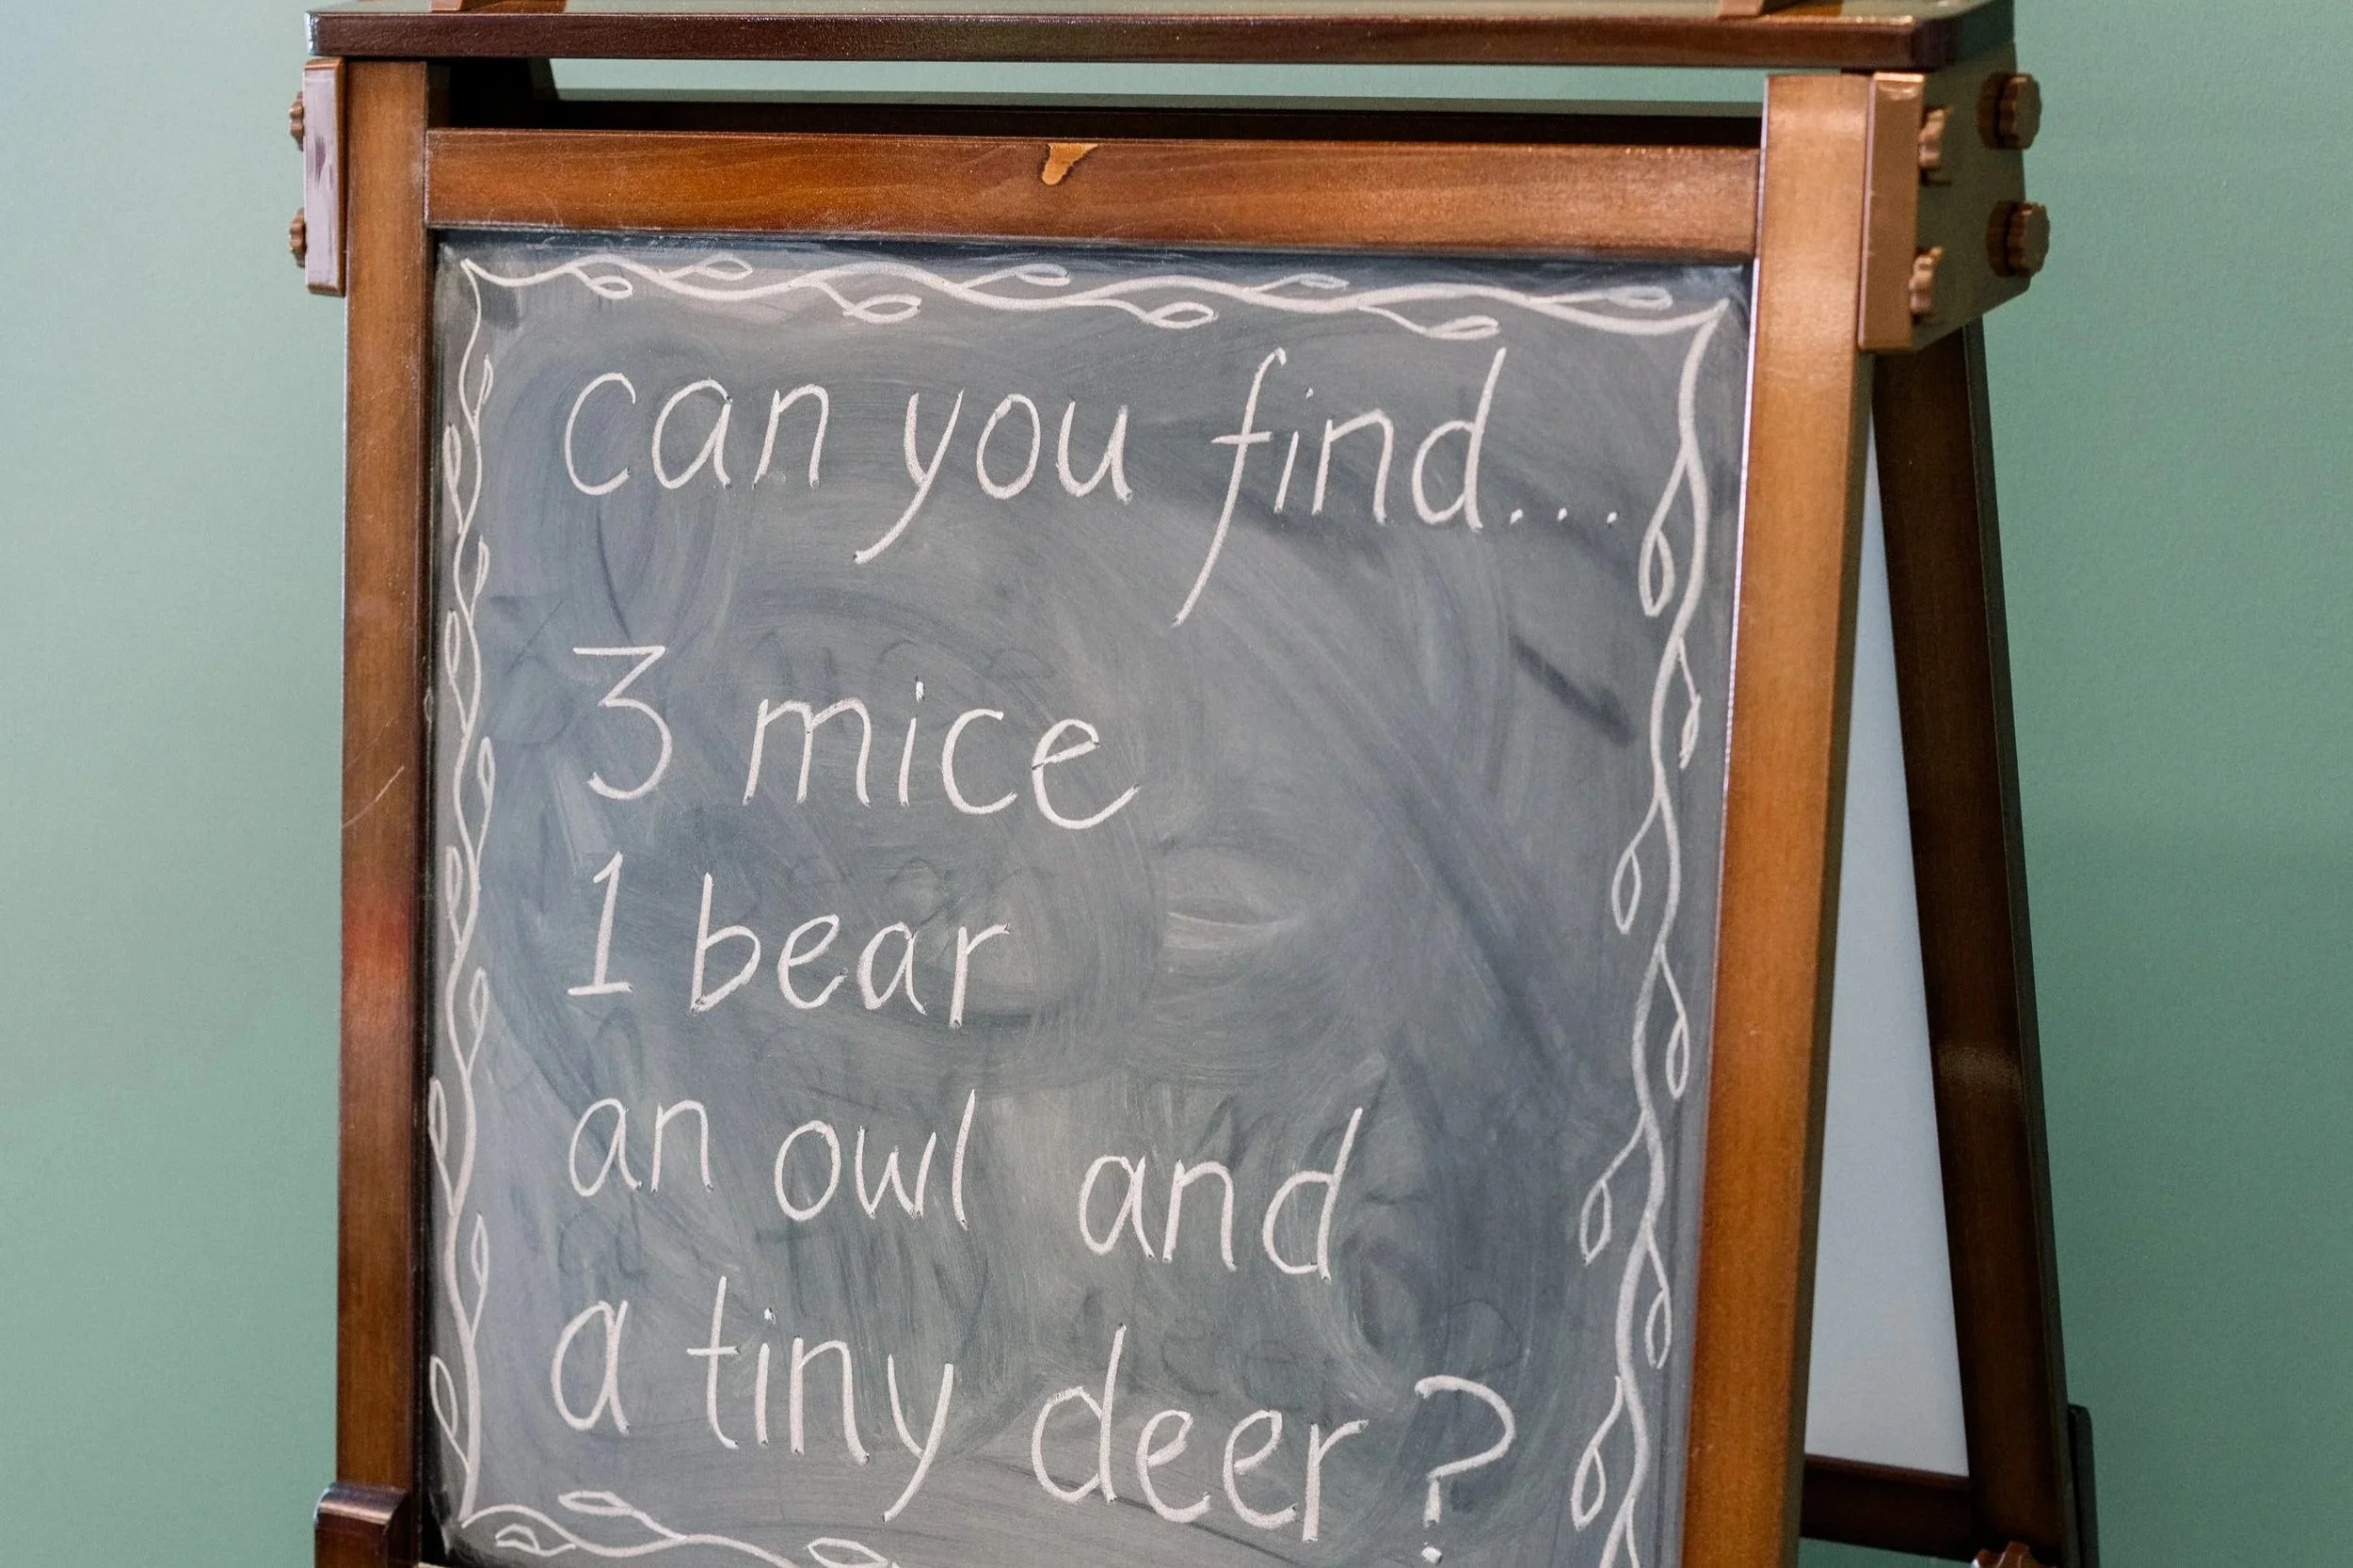 can you find...
3 mice
1 bear
an owl and
a tiny deer?